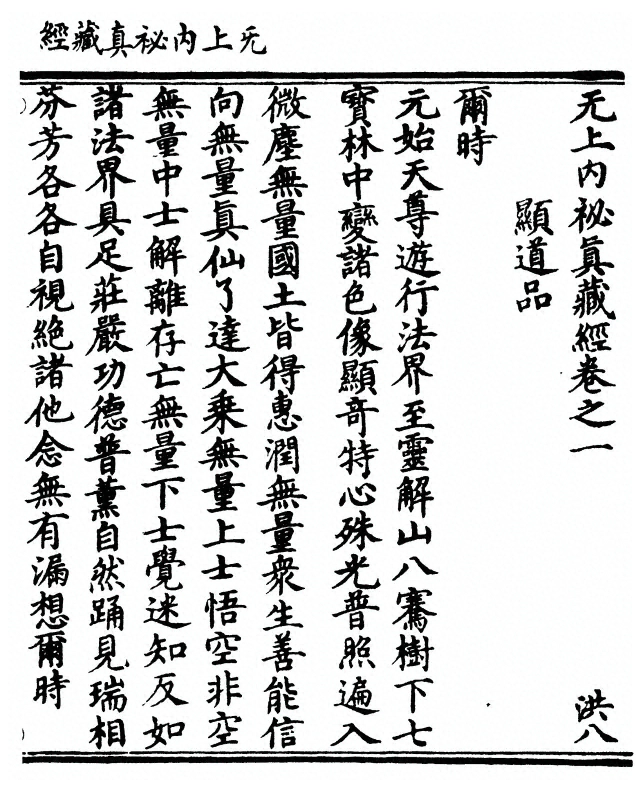 无上內祕真藏經
无上內祕真藏經卷之一
洪八
顯道品
爾時
元始天尊遊行法界至靈解山八騫樹下七
寶林中變諸色像顯奇特心殊光普照遍入
微塵無量國土皆得惠潤無量衆生善能信
向無量真仙了達大乘無量上士悟空非空
無量中士解離存亡無量下士覺迷知反如
諸法界具足莊嚴功德普薰自然踊見瑞相
芬芳各各自視絶諸他念無有漏想爾時